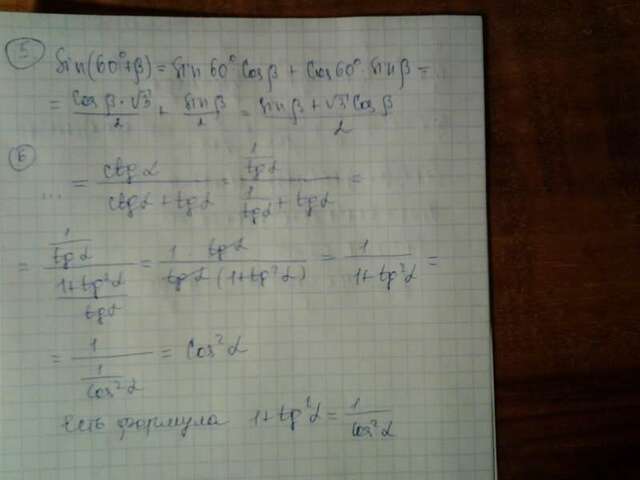 5 Sin(60°+β) = Sin 60° Cos β + Cos 60° · Sin β =
= Cos β · √3 / 2 + Sin β / 2 = Sin β + √3 Cos β / 2
6
... = ctg α / ctg α + tg α = 1/tg α / 1/tg α + tg α =
= 1/tg α / 1+tg²α/tg α = 1 tg α / tg α (1+tg²α) = 1 / 1+tg²α =
= 1 / 1/Cos²α = Cos²α
Есть формула 1+tg²α = 1/Cos²α